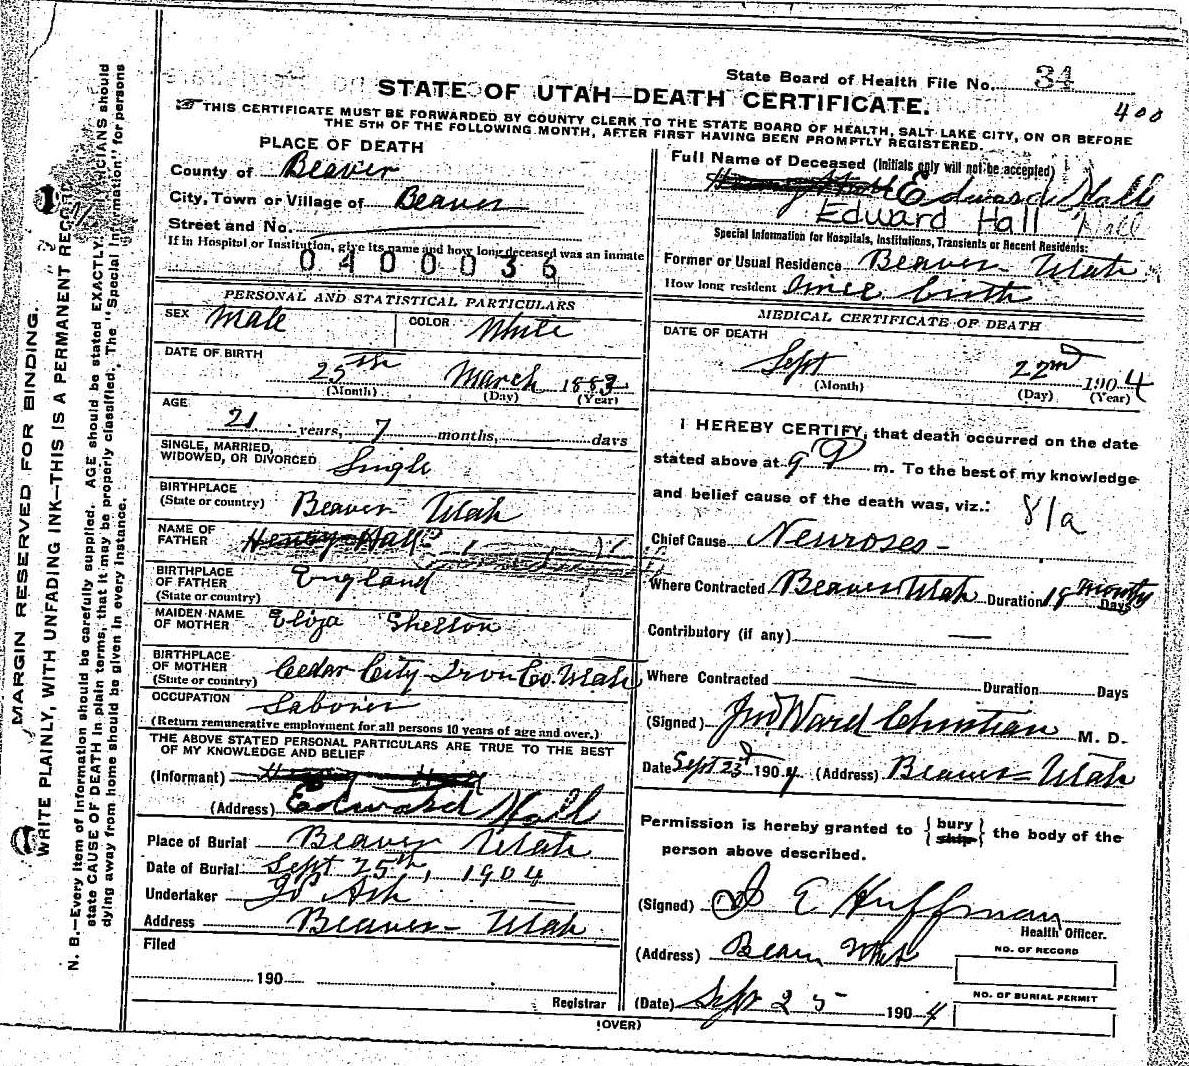 State Board of Health File No. 34
400
STATE OF UTAH—DEATH CERTIFICATE.
THIS CERTIFICATE MUST BE FORWARDED BY COUNTY CLERK TO THE STATE BOARD OF HEALTH, SALT LAKE CITY, ON OR BEFORE
THE 5TH OF THE FOLLOWING MONTH, AFTER FIRST HAVING BEEN PROMPTLY REGISTERED.
PLACE OF DEATH
County of Beaver
City, Town or Village of Beaver
Street and No.
If in Hospital or Institution, give its name and how long deceased was an inmate
0400036
PERSONAL AND STATISTICAL PARTICULARS
SEX Male COLOR White
DATE OF BIRTH
25th March 1883
(Month) (Day) (Year)
AGE
21 years, 7 months, days
SINGLE, MARRIED,
WIDOWED, OR DIVORCED Single
BIRTHPLACE
(State or country) Beaver Utah
NAME OF
FATHER Henry Hall
BIRTHPLACE
OF FATHER England
(State or country)
MAIDEN NAME
OF MOTHER Eliza Shelton
BIRTHPLACE
OF MOTHER Cedar City Iron Co. Utah
(State or country)
OCCUPATION Laborer
(Return remunerative employment for all persons 10 years of age and over.)
THE ABOVE STATED PERSONAL PARTICULARS ARE TRUE TO THE BEST
OF MY KNOWLEDGE AND BELIEF
(Informant) Henry Hall
(Address) Edward Hall
Place of Burial Beaver Utah
Date of Burial Sept 25th, 1904
Undertaker Jos Ash
Address Beaver - Utah
Filed
190
Registrar
Full Name of Deceased (Initials only will not be accepted)
Edward Hall
Edward Hall Hall
Special Information for Hospitals, Institutions, Transients or Recent Residents:
Former or Usual Residence Beaver Utah
How long resident Since birth
MEDICAL CERTIFICATE OF DEATH
DATE OF DEATH
Sept 22nd 1904
(Month) (Day) (Year)
I HEREBY CERTIFY, that death occurred on the date
stated above at 9 P m. To the best of my knowledge
and belief cause of the death was, viz.: 81a
Chief Cause Neuroses -
Where Contracted Beaver Utah Duration 18 months Days
Contributory (if any) —
Where Contracted — Duration Days
(Signed) Jno Ward Christian M. D.
Date Sept 23d 1904 (Address) Beaver - Utah
Permission is hereby granted to { bury ship } the body of the
person above described.
(Signed) E Huffman
Health Officer.
(Address) Beaver Utah
NO. OF RECORD
NO. OF BURIAL PERMIT
(Date) Sept 25 1904
(OVER)
MARGIN RESERVED FOR BINDING.
WRITE PLAINLY, WITH UNFADING INK—THIS IS A PERMANENT RECORD
N. B.—Every item of information should be carefully supplied. AGE should be stated EXACTLY. PHYSICIANS should
state CAUSE OF DEATH in plain terms, that it may be properly classified. The "Special Information" for persons
dying away from home should be given in every instance.